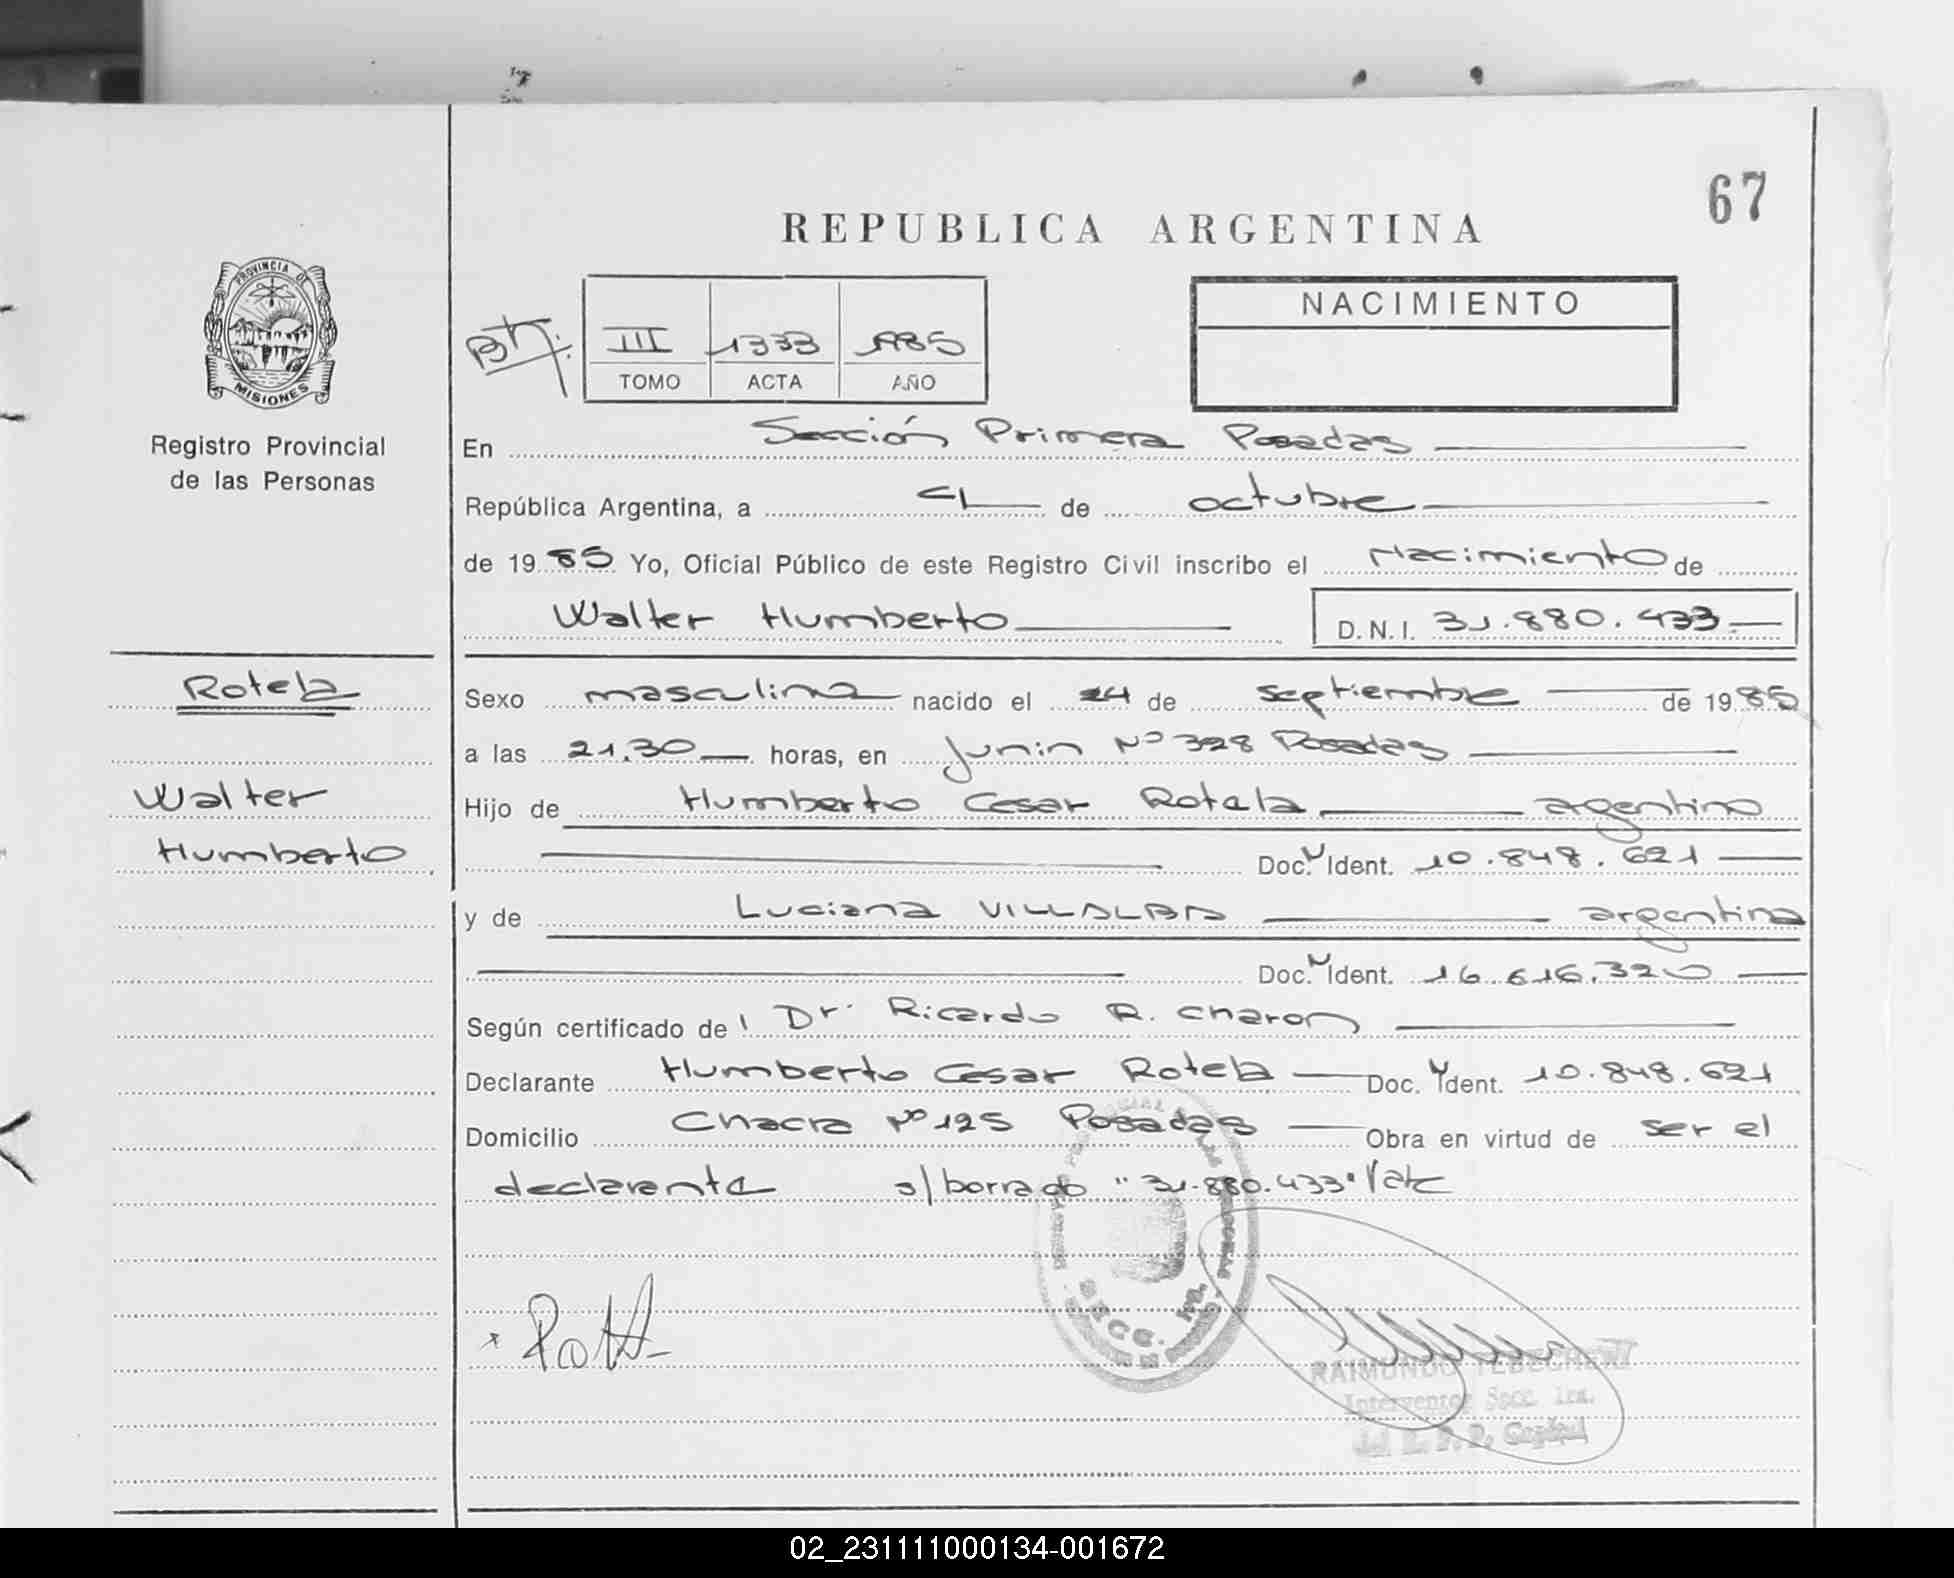 67
REPUBLICA ARGENTINA
PROVINCIA DE
MISIONES
Registro Provincial
de las Personas
III 1333 1985
TOMO ACTA AÑO
NACIMIENTO
En Sección Primera Posadas
República Argentina, a 4 de octubre
de 1985 Yo, Oficial Público de este Registro Civil inscribo el Nacimiento de
Walter Humberto D.N.I. 31.880.433
Rotela
Walter
Humberto
Sexo masculino nacido el 24 de septiembre de 1985
a las 21.30 horas, en Junin Nº 328 Posadas
Hijo de Humberto Cesar Rotela argentino
Doc. N Ident. 10.848.621
y de Luciana VILLALBA argentina
Doc. N Ident. 16.616.320
Según certificado de Dr. Ricardo R. Charon
Declarante Humberto Cesar Rotela Doc. Ident. 10.848.621
Domicilio Chacra Nº 125 Posadas Obra en virtud de ser el
declarante s/borrado "31.880.433"
SECC. 1ra.
RAIMUNDO
Interventor Secc. 1ra.
del R. P. P. Capital
02_231111000134-001672